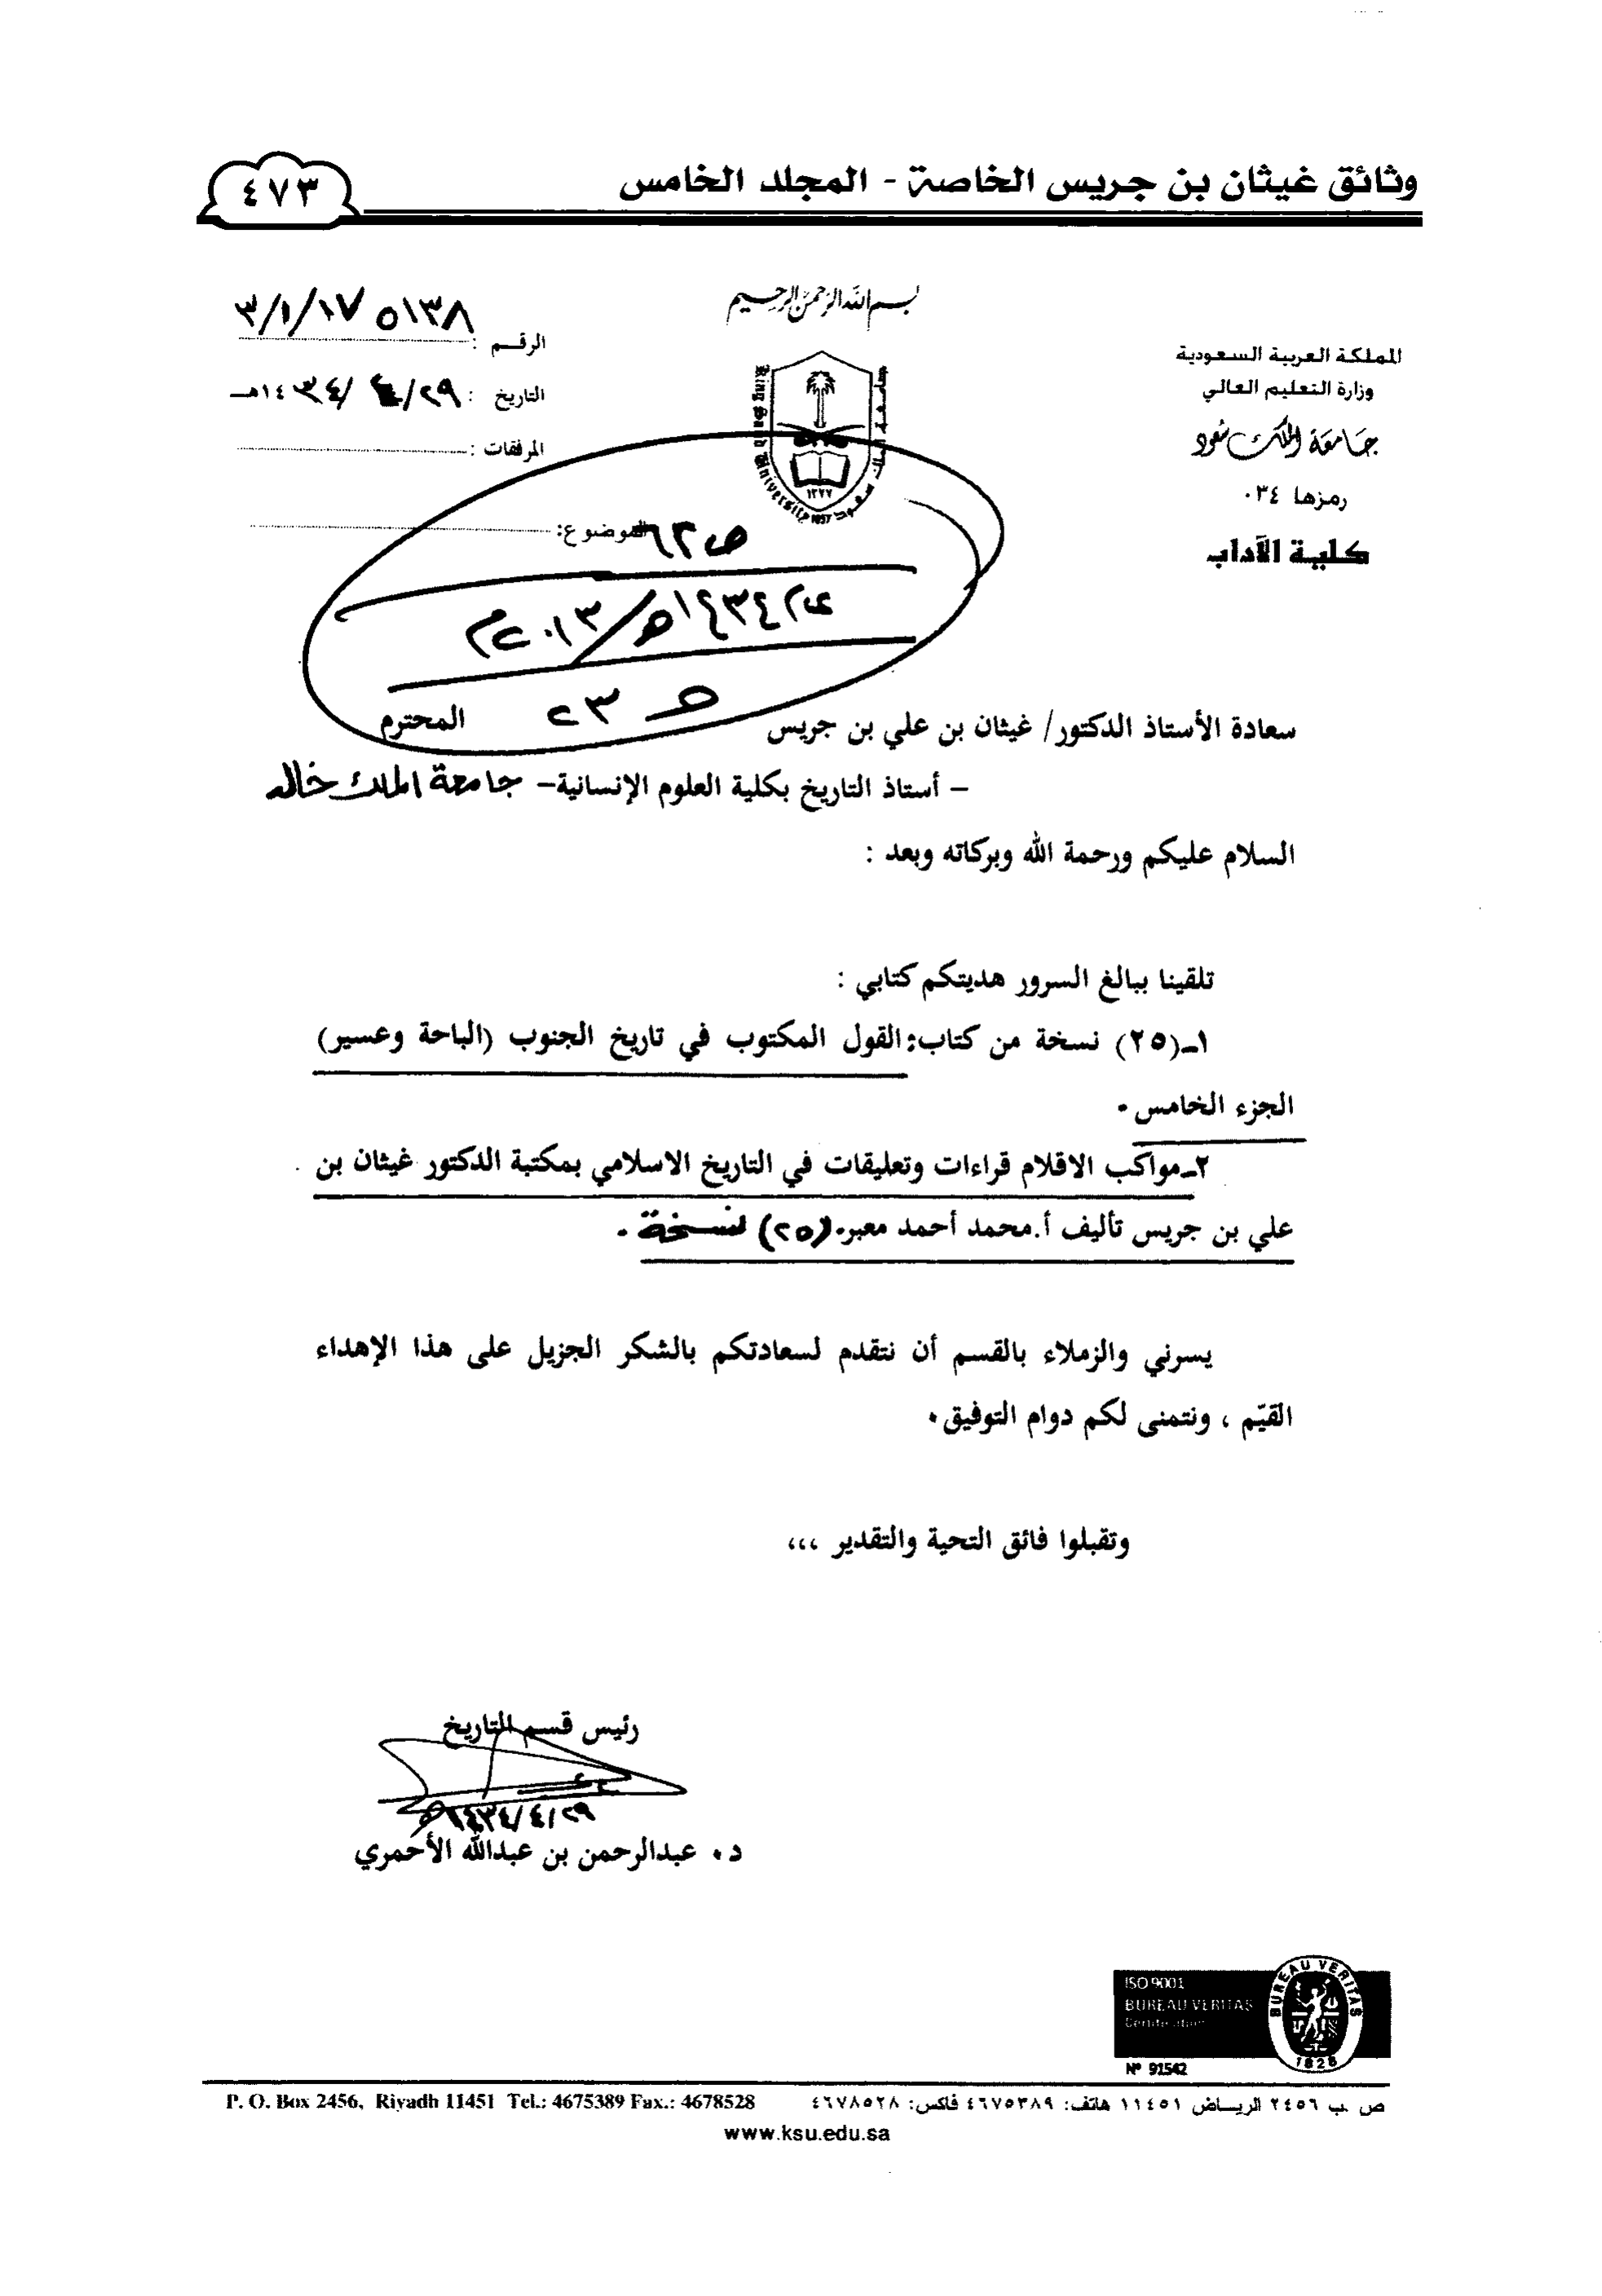 وثائق غيثان بن جريس الخاصة - المجلد الخامس
٤٧٣
بسم الله الرحمن الرحيم
المملكة العربية السعودية
وزارة التعليم العالي
جامعة الملك سعود
رمزها ٠٣٤
كلية الآداب
King Saud University
١٣٧٧
1957
الرقم : ٣/١/١٧ ٥١٣٨
التاريخ : ٢٩/٤/١٤٣٤هـ
المرفقات :
الموضوع:
١٤٣٤هـ/٢٠١٣م
سعادة الأستاذ الدكتور/ غيثان بن علي بن جريس المحترم
– أستاذ التاريخ بكلية العلوم الإنسانية– جامعة الملك خالد
السلام عليكم ورحمة الله وبركاته وبعد :
تلقينا ببالغ السرور هديتكم كتابي :
١-(٢٥) نسخة من كتاب: القول المكتوب في تاريخ الجنوب (الباحة وعسير)
الجزء الخامس.
٢-مواكب الاقلام قراءات وتعليقات في التاريخ الاسلامي بمكتبة الدكتور غيثان بن
علي بن جريس تأليف أ.محمد أحمد معبر.(٢٥) نسخة.
يسرني والزملاء بالقسم أن نتقدم لسعادتكم بالشكر الجزيل على هذا الإهداء
القيّم ، ونتمنى لكم دوام التوفيق.
وتقبلوا فائق التحية والتقدير ،،،
رئيس قسم التاريخ
٢٩/٤/١٤٣٤هـ
د. عبدالرحمن بن عبدالله الأحمري
ISO 9001
BUREAU VERITAS
Certification
Nº 91542
BUREAU VERITAS
1828
P. O. Box 2456, Riyadh 11451 Tel.: 4675389 Fax.: 4678528
ص ب ٢٤٥٦ الرياض ١١٤٥١ هاتف: ٤٦٧٥٣٨٩ فاكس: ٤٦٧٨٥٢٨
www.ksu.edu.sa